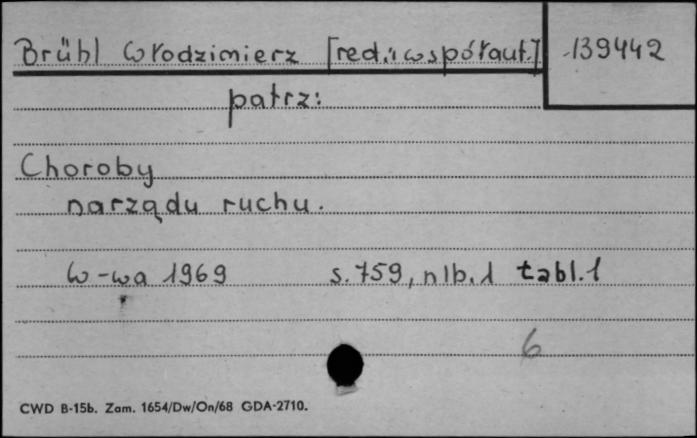 Brühl Włodzimierz [red. i współaut.] 139442
patrz:
Choroby
narządu ruchu.
W-wa 1969 s. 759, nlb. 1 tabl. 1
6
CWD B-15b. Zam. 1654/Dw/On/68 GDA-2710.